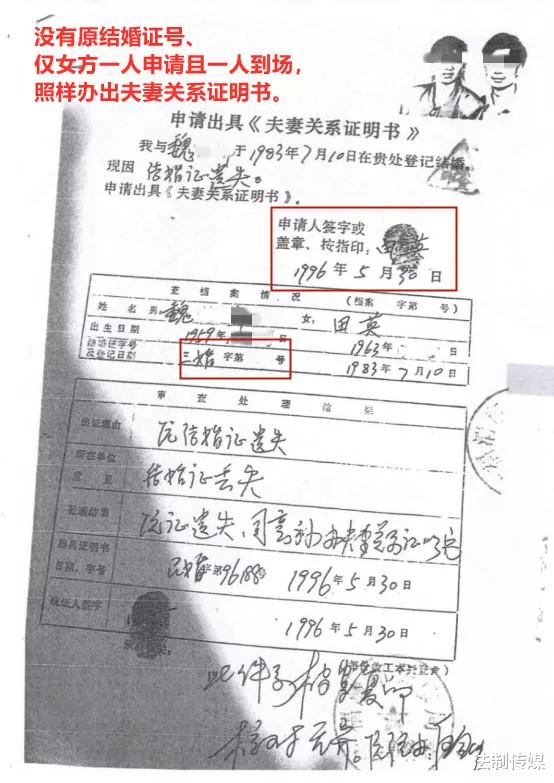 没有原结婚证号、
仅女方一人申请且一人到场，
照样办出夫妻关系证明书。
申请出具《夫妻关系证明书》
我与魏 于1983年7月10日在贵处登记结婚。
现因结婚证遗失。
申请出具《夫妻关系证明书》。
申请人签字或
盖章、按指印：田英
1996年5月30日
查档案情况 （档案 字第 号）
姓名 男：魏 女：田英
出生日期 1959年 日 1963 日
结婚证字号
及登记日期 字第 号 1983年7月10日
审查处理结果
出证理由 原结婚证遗失
所在单位
意见 结婚证丢失
处理结果 原证遗失、同意
出具证明书
日期、字号 字第96188号 1996年5月30日
领证人签字 1996年5月30日
此件系档案复印
核对无异。
法制传媒